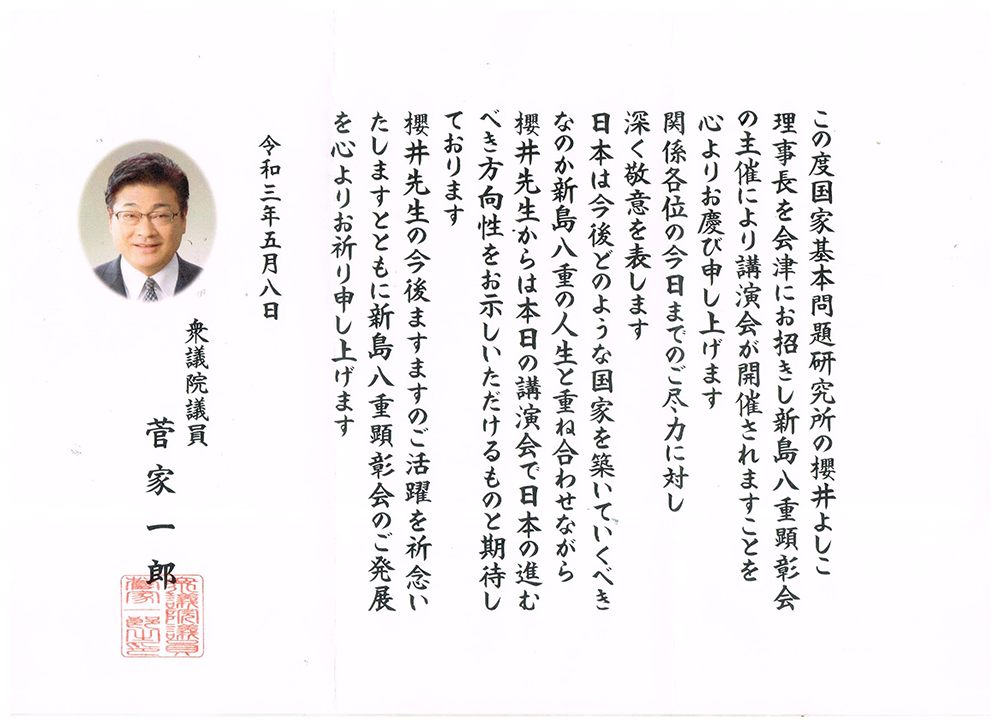 この度国家基本問題研究所の櫻井よしこ
理事長を会津にお招きし新島八重顕彰会
の主催により講演会が開催されますことを
心よりお慶び申し上げます
関係各位の今日までのご尽力に対し
深く敬意を表します
日本は今後どのような国家を築いていくべき
なのか新島八重の人生と重ね合わせながら
櫻井先生からは本日の講演会で日本の進む
べき方向性をお示しいただけるものと期待し
ております
櫻井先生の今後ますますのご活躍を祈念い
たしますとともに新島八重顕彰会のご発展
を心よりお祈り申し上げます
令和三年五月八日
衆議院議員
菅家一郎
衆議院議員
菅家一郎之印